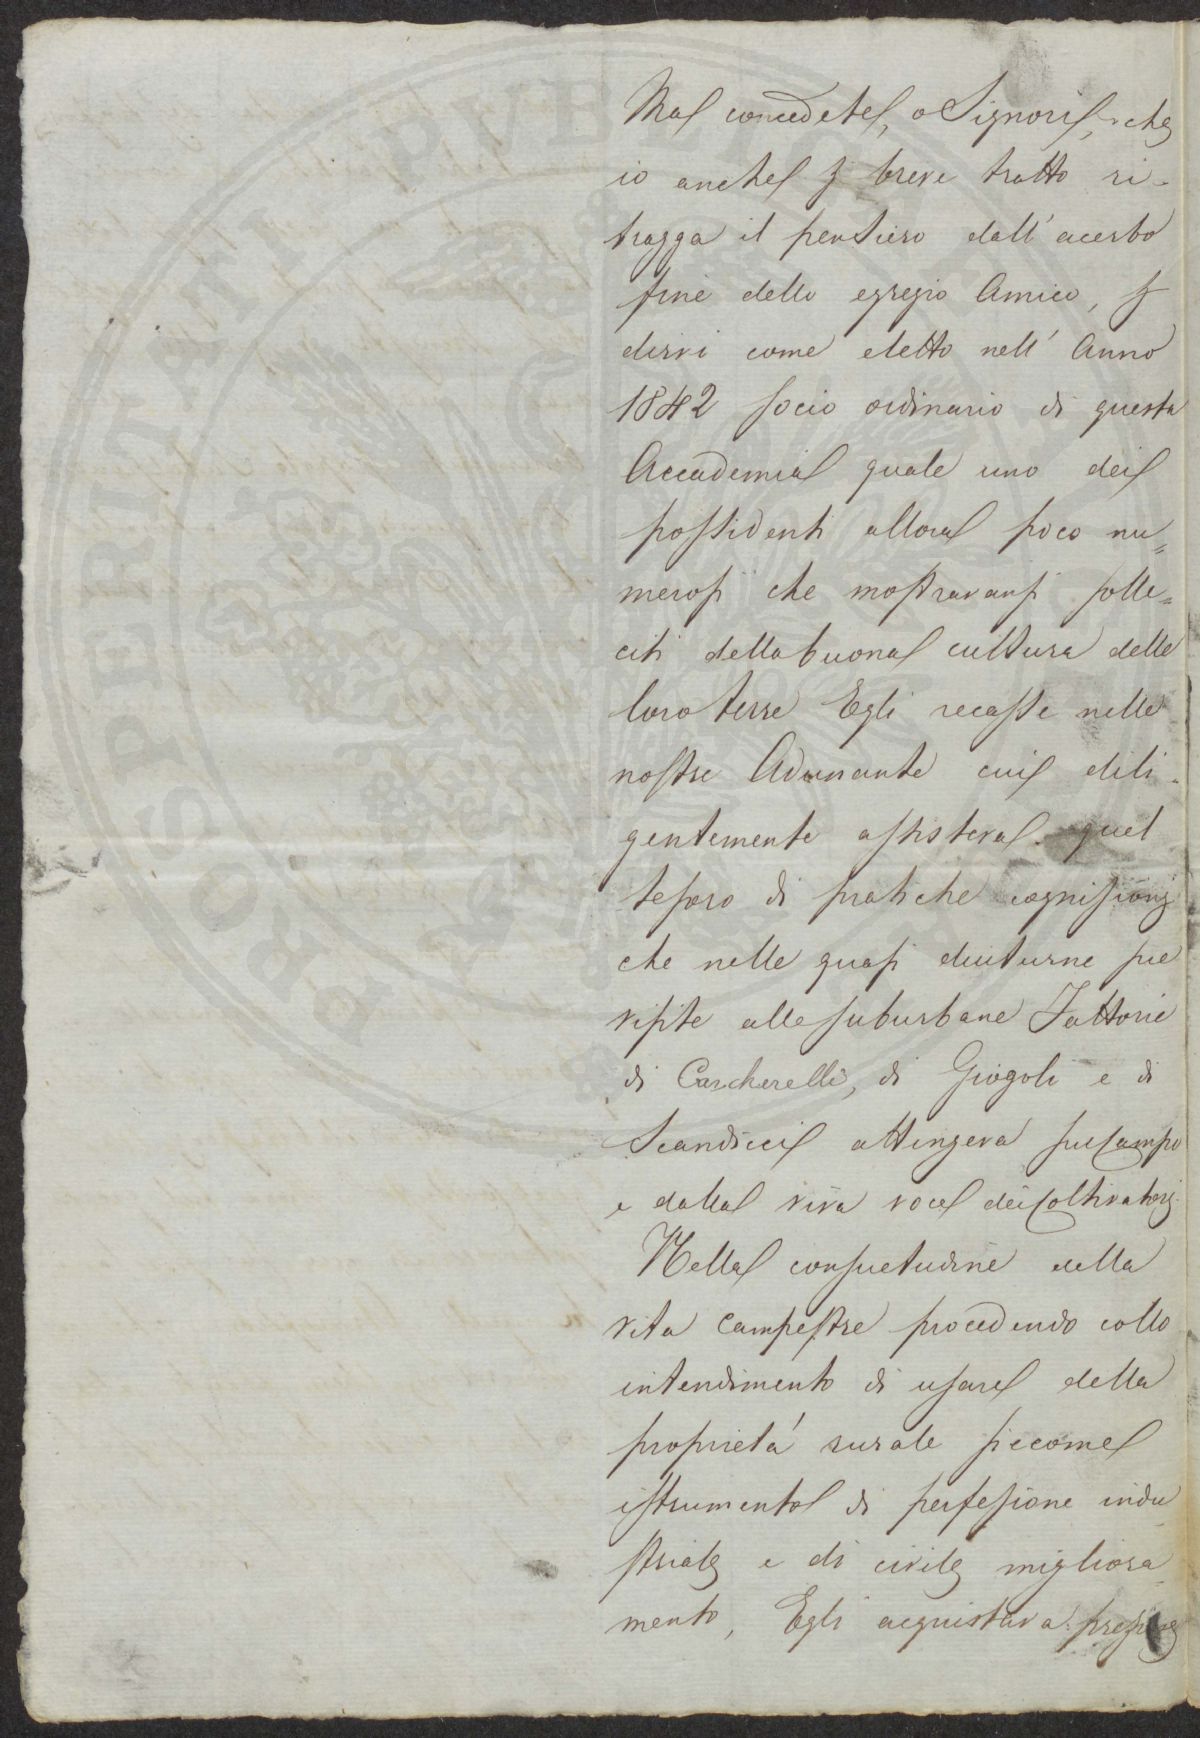 Ma concedete, o Signori, che
io anche p breve tratto ri-
tragga il pensiero dall' acerbo
fine dello egregio Amico, p
dirvi come eletto nell' Anno
1842 socio ordinario di questa
Accademia quale uno dei
possidenti allora poco nu=
merosi che mostravansi solle=
citi della buona cultura delle
loro terre Egli recasse nelle
nostre Adunante cui dili-
gentemente assisteva quel
tesoro di pratiche cognisioni
che nelle quasi diuturne sue
visite alle suburbane Fattorie
di Carcherelli, di Giogoli e di
Scandicci attingeva sul campo
e dalla viva voce dei coltivatori.
Nella consuetudine della
vita campestre procedendo collo
intendimento di usare della
proprietá rurale siccome
istrumento di perfesione indu
striale e di civile migliora-
mento, Egli acquistava
PROSPERITATI PUBLICAE